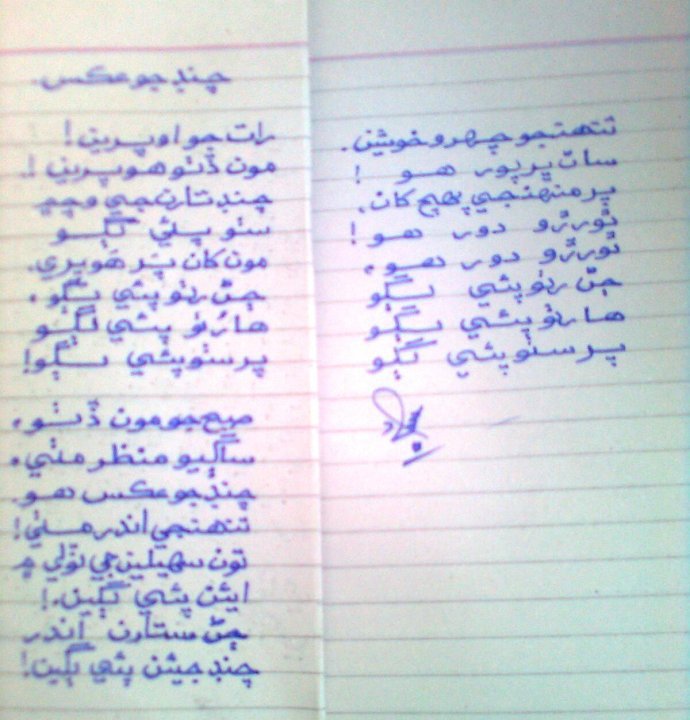 چنڊ جو عڪس
رات جو او پرين!
مون ڏٺو هو پرين!
چنڊ تارن جي وچ ۾
سٺو پئي لڳو
مون کان پر هو پري،
ڄڻ رٺو پئي لڳو،
هارڻو پئي لڳو
پر سٺو پئي لڳو!
صبح جو مون ڏٺو،
ساڳيو منظر مٺي،
چنڊ جو عڪس هو
تنهنجي اندر مٺي!
تون سهيلين جي ٽولي ۾
ايئن پئي لڳين،!
ڄڻ ستارن اندر
چنڊ جيئن پئي لڳين!
تنهنجو چهرو خوشين،
سان ڀرپور هو!
پر منهنجي پهچ کان،
ٿورڙو دور هو!
ٿورڙو دور هو،
ڄڻ رٺو پئي لڳو
هارڻو پئي لڳو
پر سٺو پئي لڳو